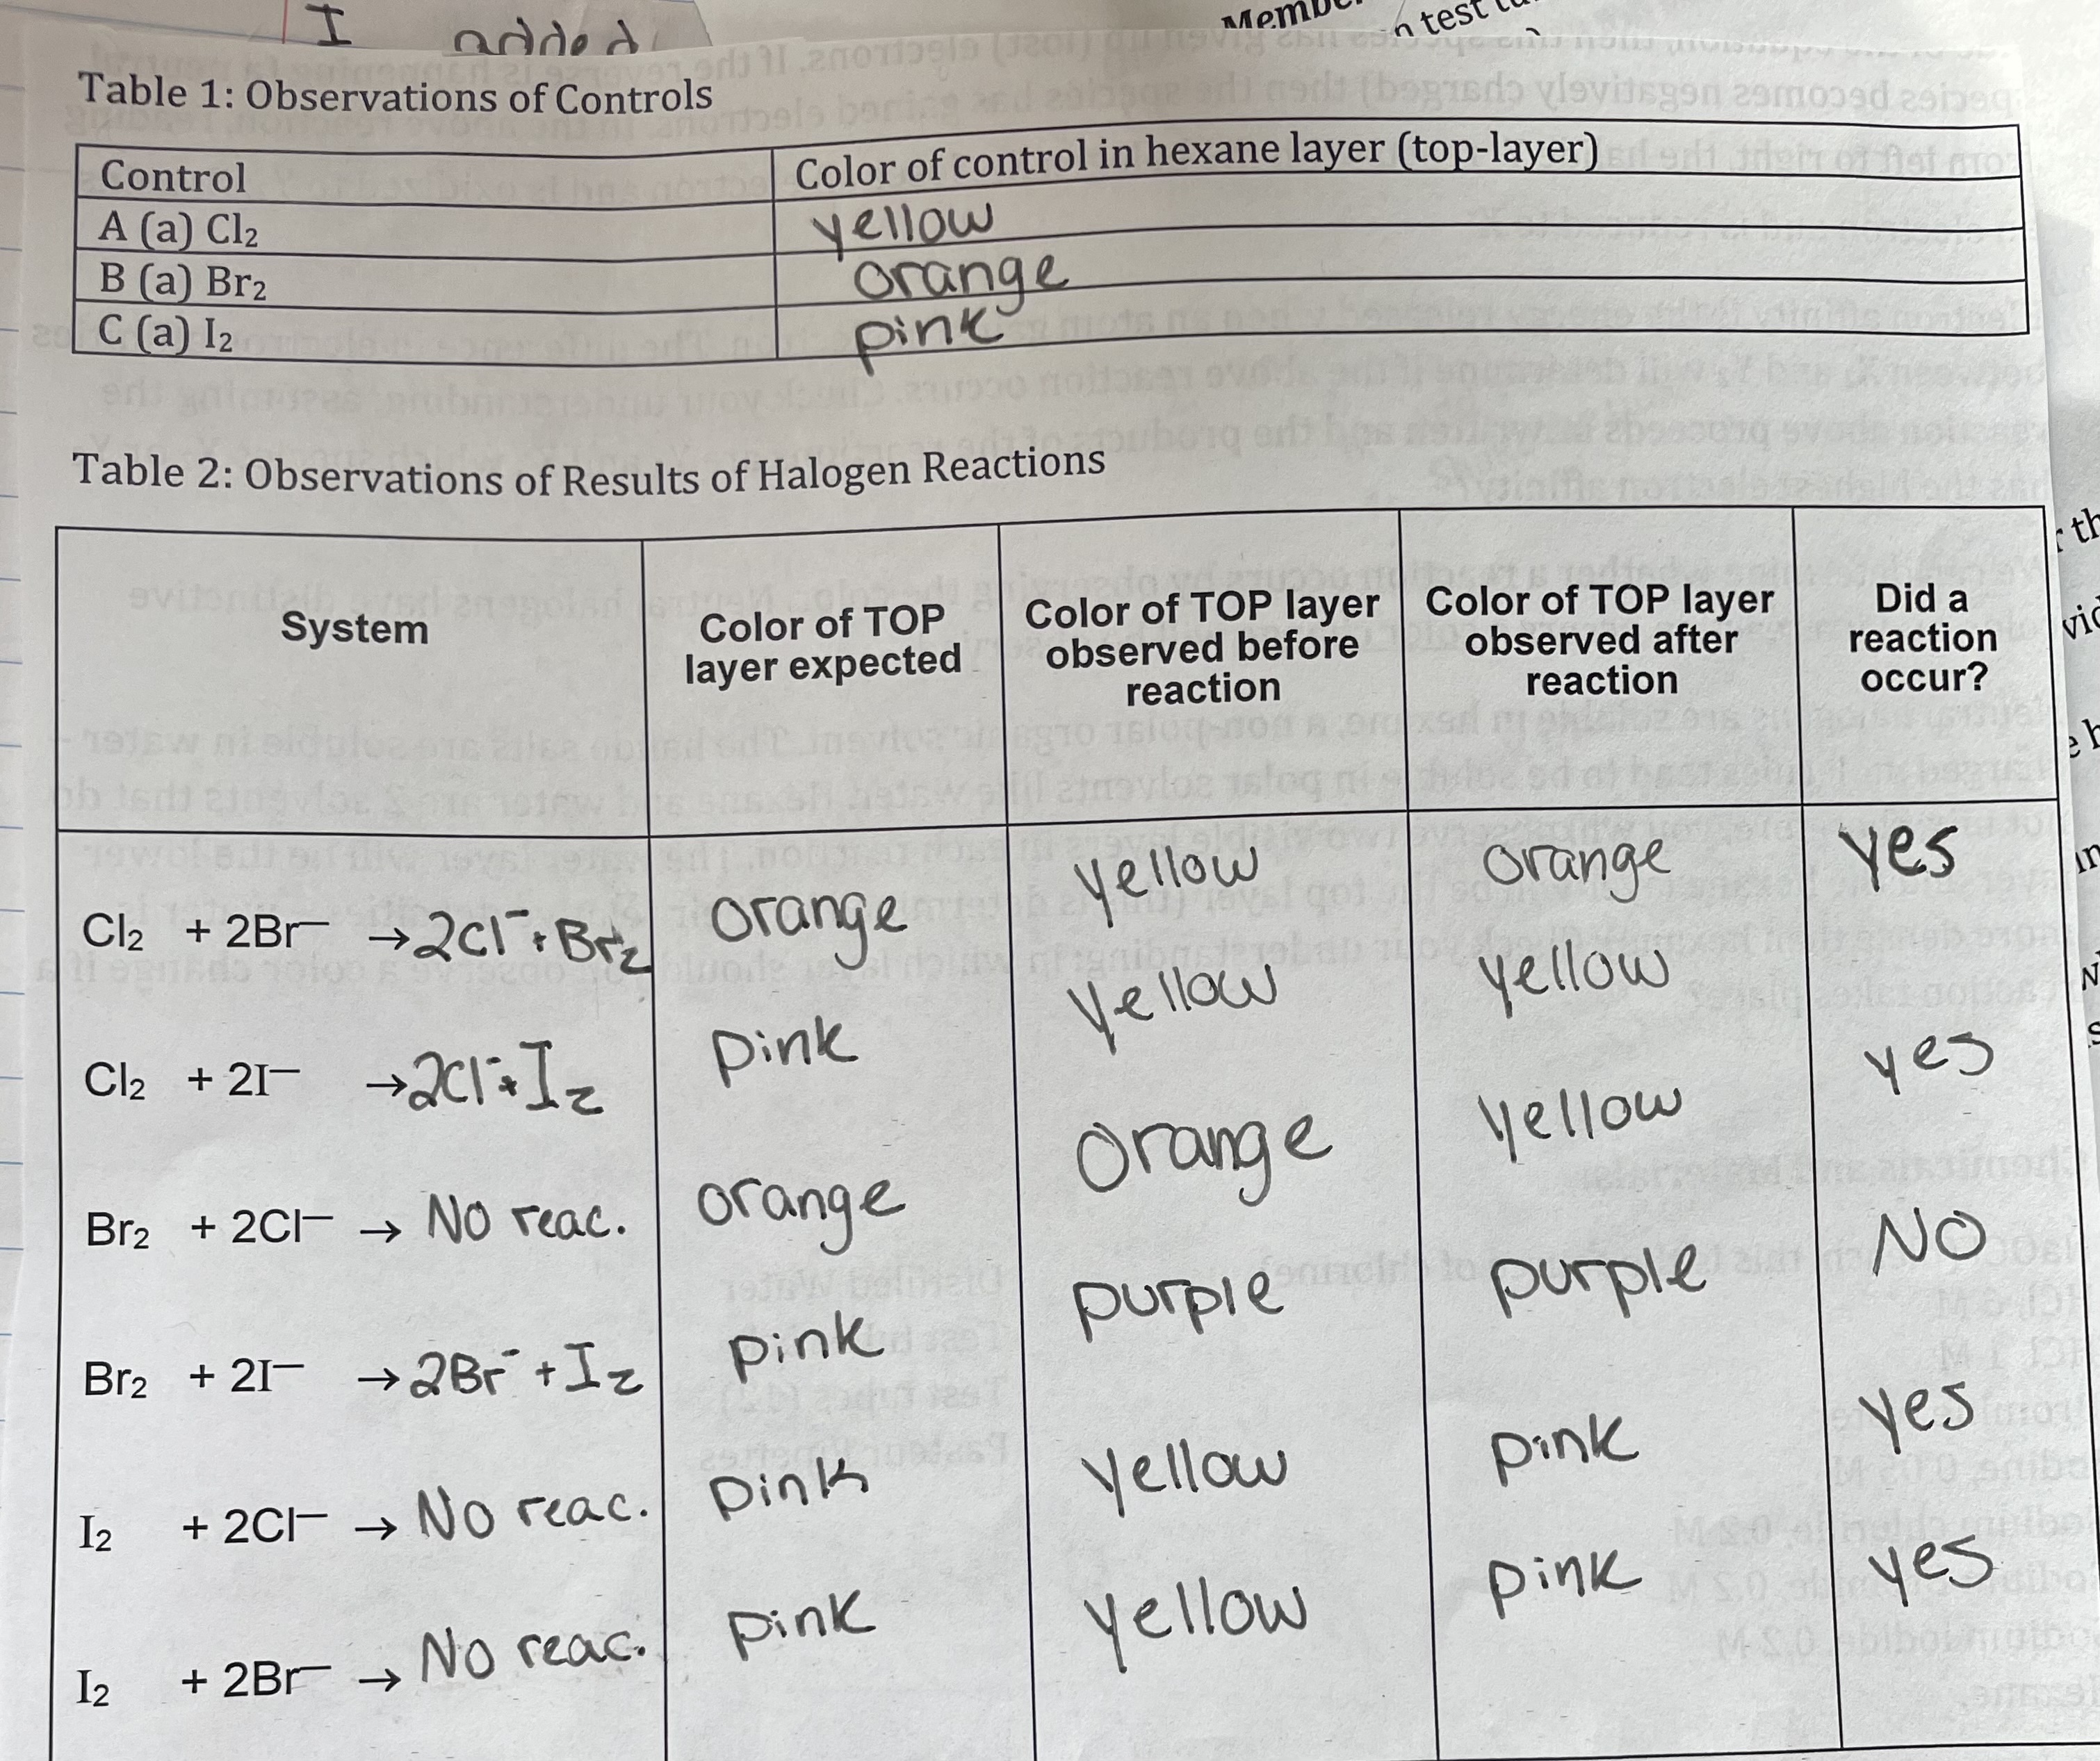 I added
Membe
n test tu
Table 1: Observations of Controls
Control Color of control in hexane layer (top-layer)
A (a) Cl₂ yellow
B (a) Br₂ orange
C (a) I₂ pink
Table 2: Observations of Results of Halogen Reactions
System Color of TOP layer expected Color of TOP layer observed before reaction Color of TOP layer observed after reaction Did a reaction occur?
Cl₂ + 2Br⁻ → 2Cl⁻ + Br₂ orange yellow orange yes
Cl₂ + 2I⁻ → 2Cl⁻ + I₂ pink yellow yellow yes
Br₂ + 2Cl⁻ → No reac. orange orange yellow NO
Br₂ + 2I⁻ → 2Br⁻ + I₂ pink purple purple yes
I₂ + 2Cl⁻ → No reac. pink yellow pink yes
I₂ + 2Br⁻ → No reac. pink yellow pink